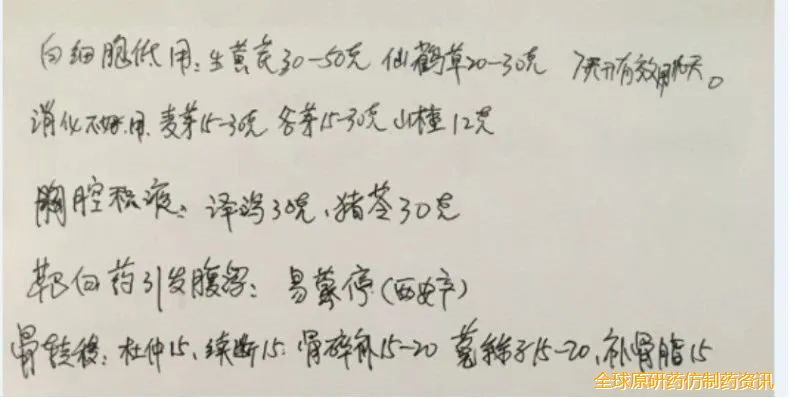 白细胞低用：生黄芪30-50克 仙鹤草20-30克 7天有效用天。
消化不好用 麦芽15-30克 谷芽15-30克 山楂12克
胸腔积液：泽泻30克、猪苓30克
靶向药引发腹泻：易蒙停（西安产）
骨转移：杜仲15、续断15、骨碎补15-20 菟丝子15-20、补骨脂15
全球原研药仿制药资讯